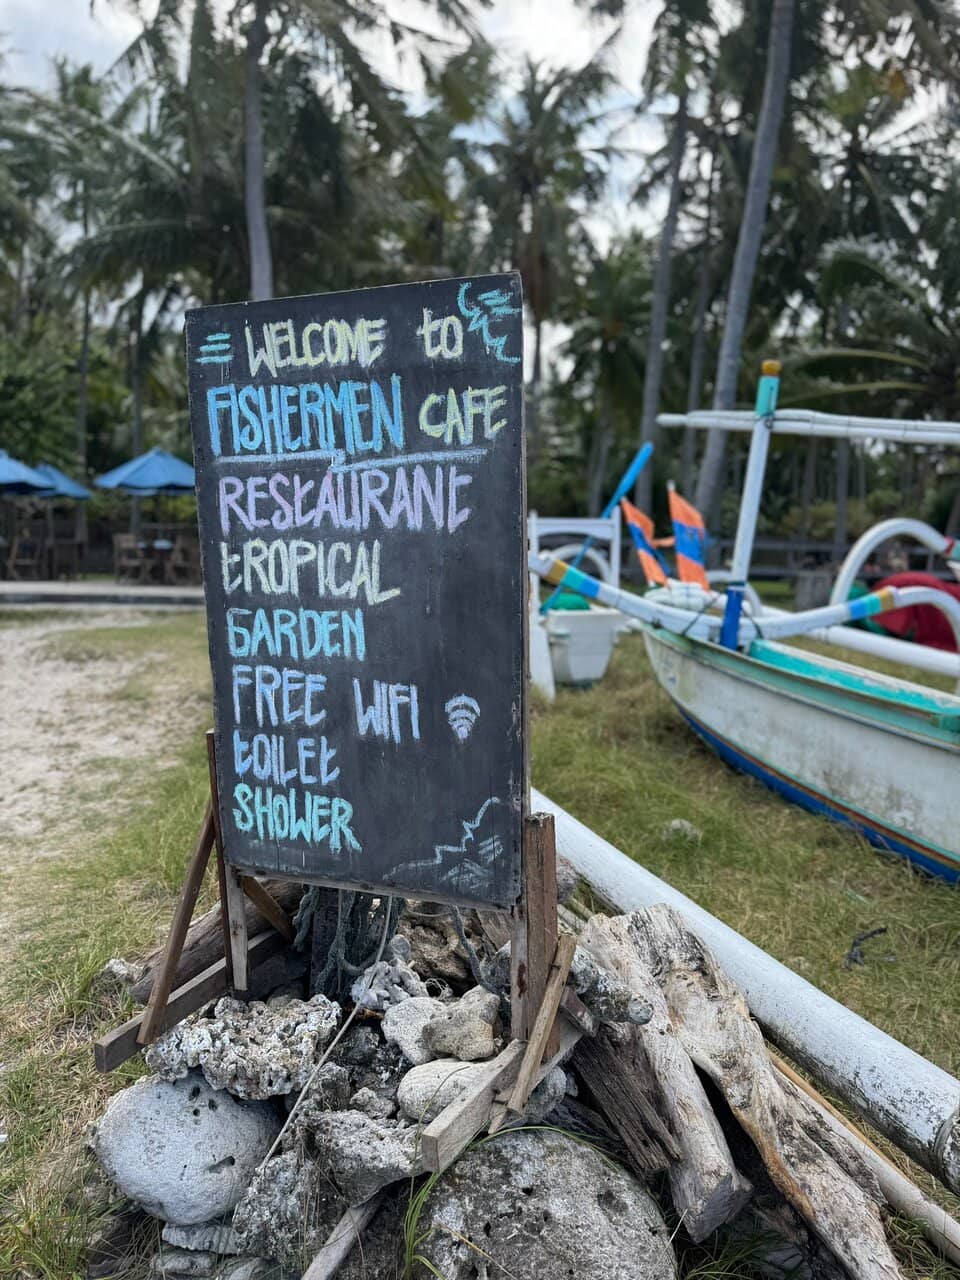 WELCOME to
FISHERMEN CAFE
RESTAURANT
tROPICAL
GARDEN
FREE WIFI
tOILEt
SHOWER